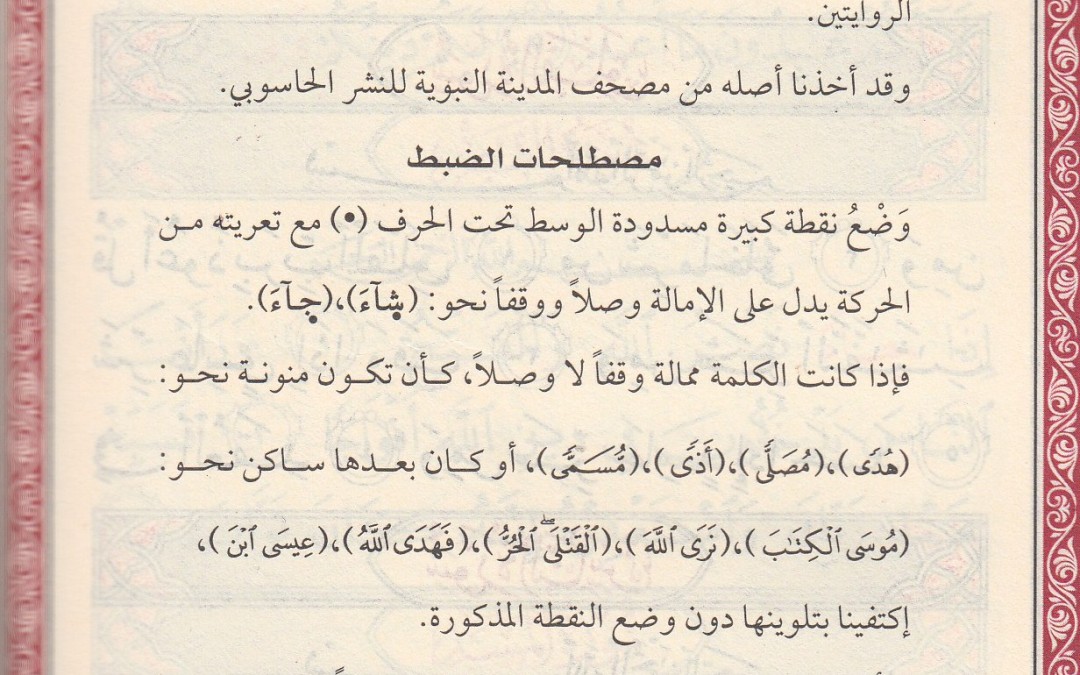 الروايتين.
وقد أخذنا أصله من مصحف المدينة النبوية للنشر الحاسوبي.
مصطلحات الضبط
وَضْعُ نقطة كبيرة مسدودة الوسط تحت الحرف (•) مع تعريته مـن
الحركة يدل على الإمالة وصلاً ووقفاً نحو: (شآءَ)،(جآءَ).
فإذا كانت الكلمة ممالة وقفاً لا وصلاً، كـأن تكـون منونـة نحـو:
(هُدًى)،(مُصَلًّى)،(أَذًى)،(مُّسَمًّى)، أو كـان بعـدها سـاكن نحـو:
(مُوسَى ٱلْكِتَـٰبَ)،(نَرَى ٱللَّهَ)،(ٱلْقَتْلَى ۖ ٱلْحُرُّ)،(فَهَدَى ٱللَّهُ)،(عِيسَى ٱبْنَ)،
إكتفينا بتلوينها دون وضع النقطة المذكورة.